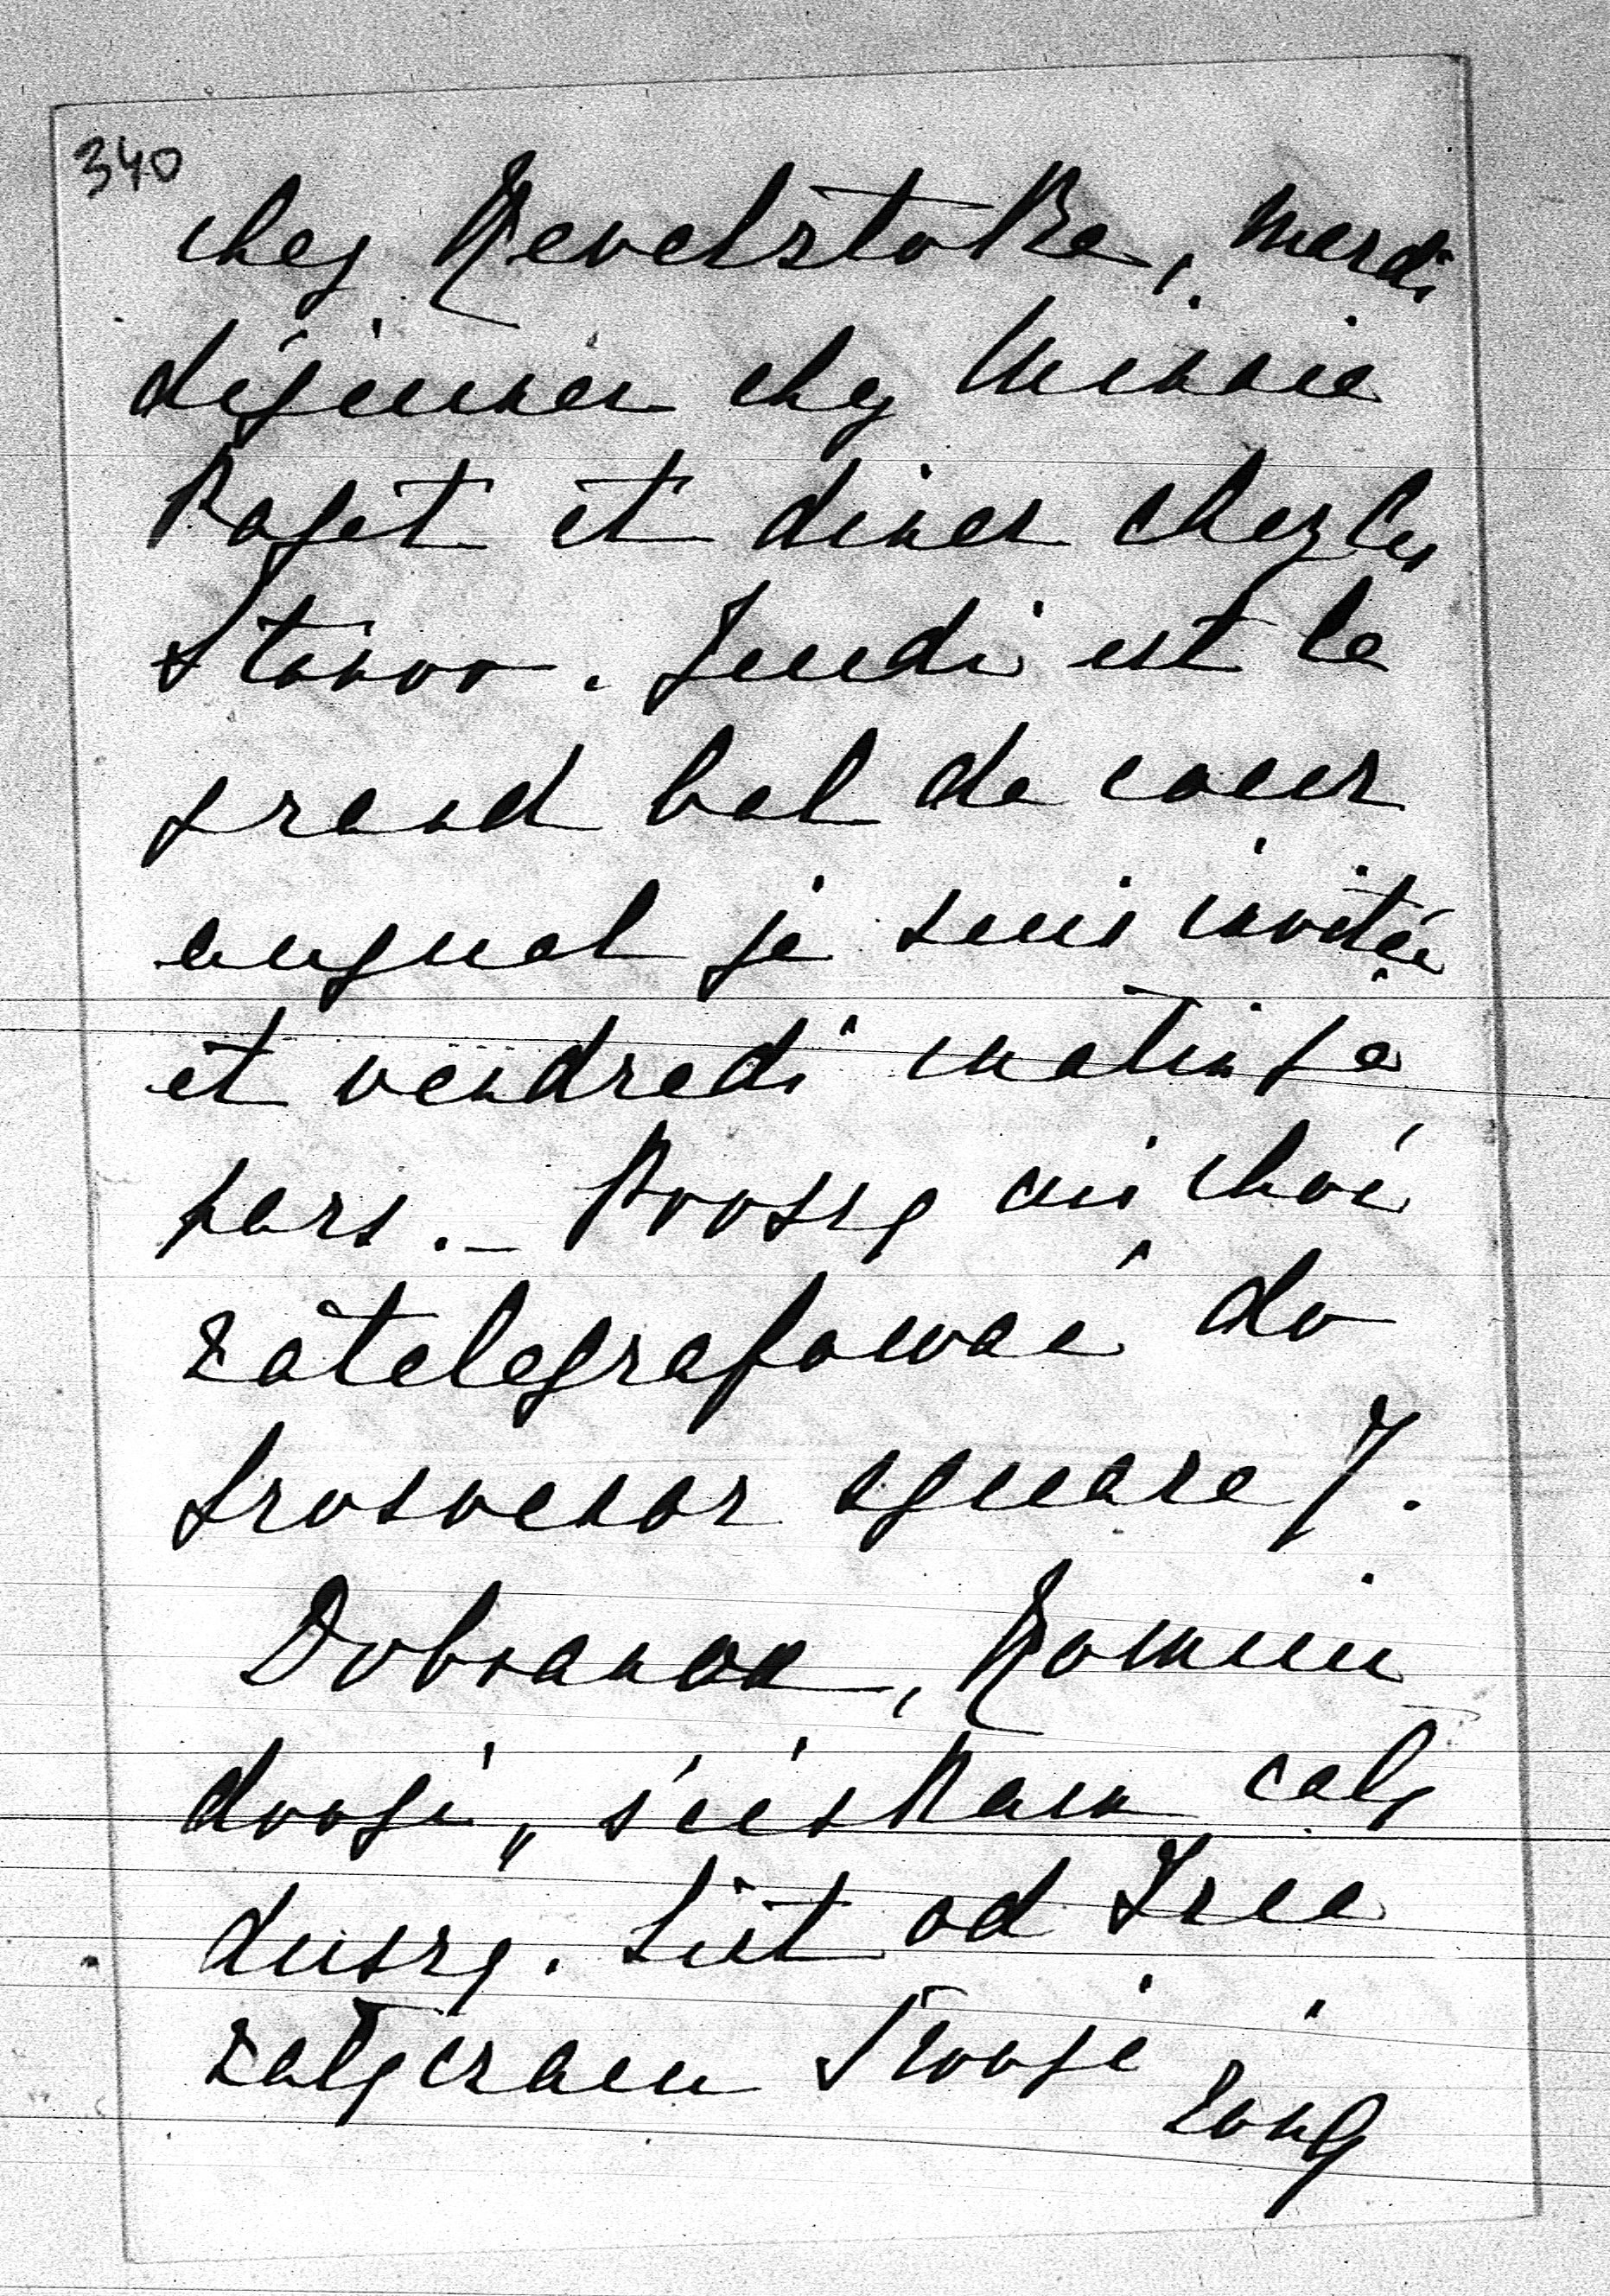 340
chez Revelstoke, mardi
déjeuner chez Minnie
Paget et diner chez les
Jeudi est le
grand bal de cour
auquel je suis invitée
et vendredi matin je
pars. _ Proszę mi choć
zatelegrafować do
Grosvenor square 7.
Dobranoc, Romciu
drogi, ściskam całą
duszą. List od
załączam Twoja
żona